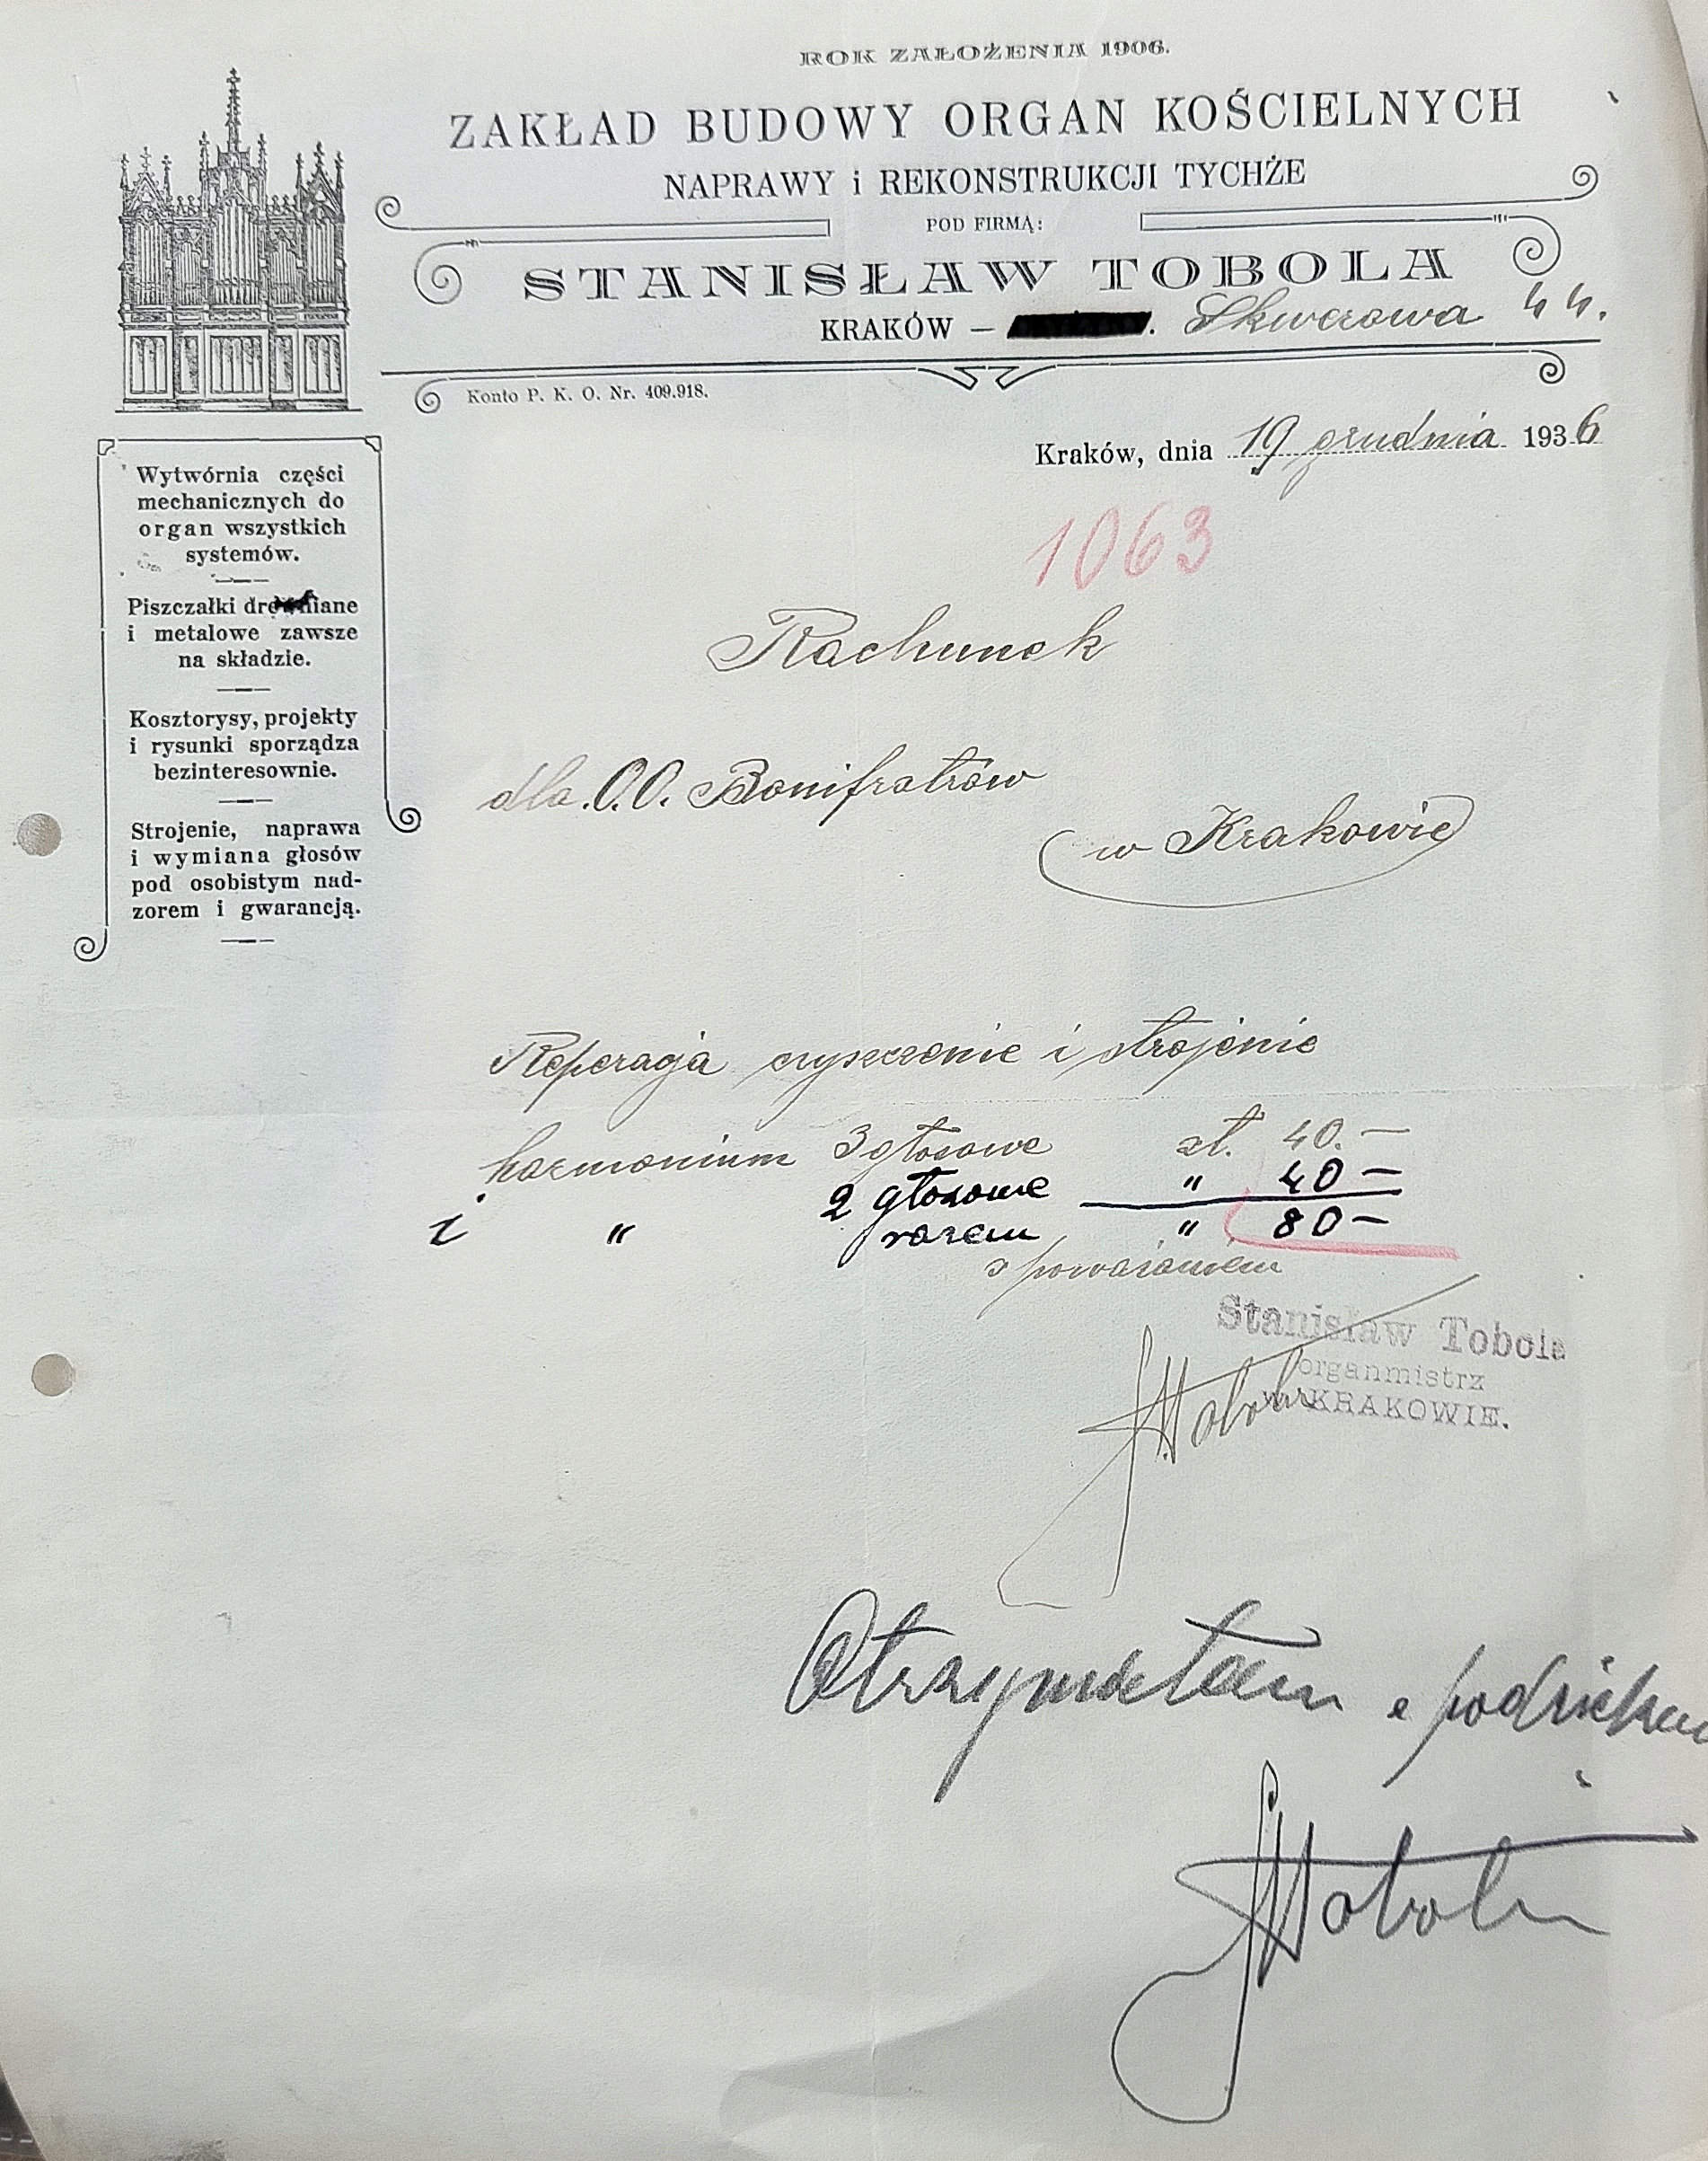 ROK ZAŁOŻENIA 1906.
ZAKŁAD BUDOWY ORGAN KOŚCIELNYCH
NAPRAWY i REKONSTRUKCJI TYCHŻE
POD FIRMĄ:
STANISŁAW TOBOLA
KRAKÓW – . Skwerowa 44.
Konto P. K. O. Nr. 409.918.
Kraków, dnia 19 grudnia 1936
1063
Wytwórnia części
mechanicznych do
organ wszystkich
systemów.
Piszczałki drewniane
i metalowe zawsze
na składzie.
Kosztorysy, projekty
i rysunki sporządza
bezinteresownie.
Strojenie, naprawa
i wymiana głosów
pod osobistym nad-
zorem i gwarancją.
Rachunek
dla. O.O. Bonifratrów
w Krakowie
Reperacja czyszczenie i strojenie
harmonium 3 głosowe zł. 40.—
i " 2 głosowe " 40—
razem " 80—
z poważaniem
Stanisław Tobola
organmistrz
w KRAKOWIE.
STobola
Otrzymałem
STobola